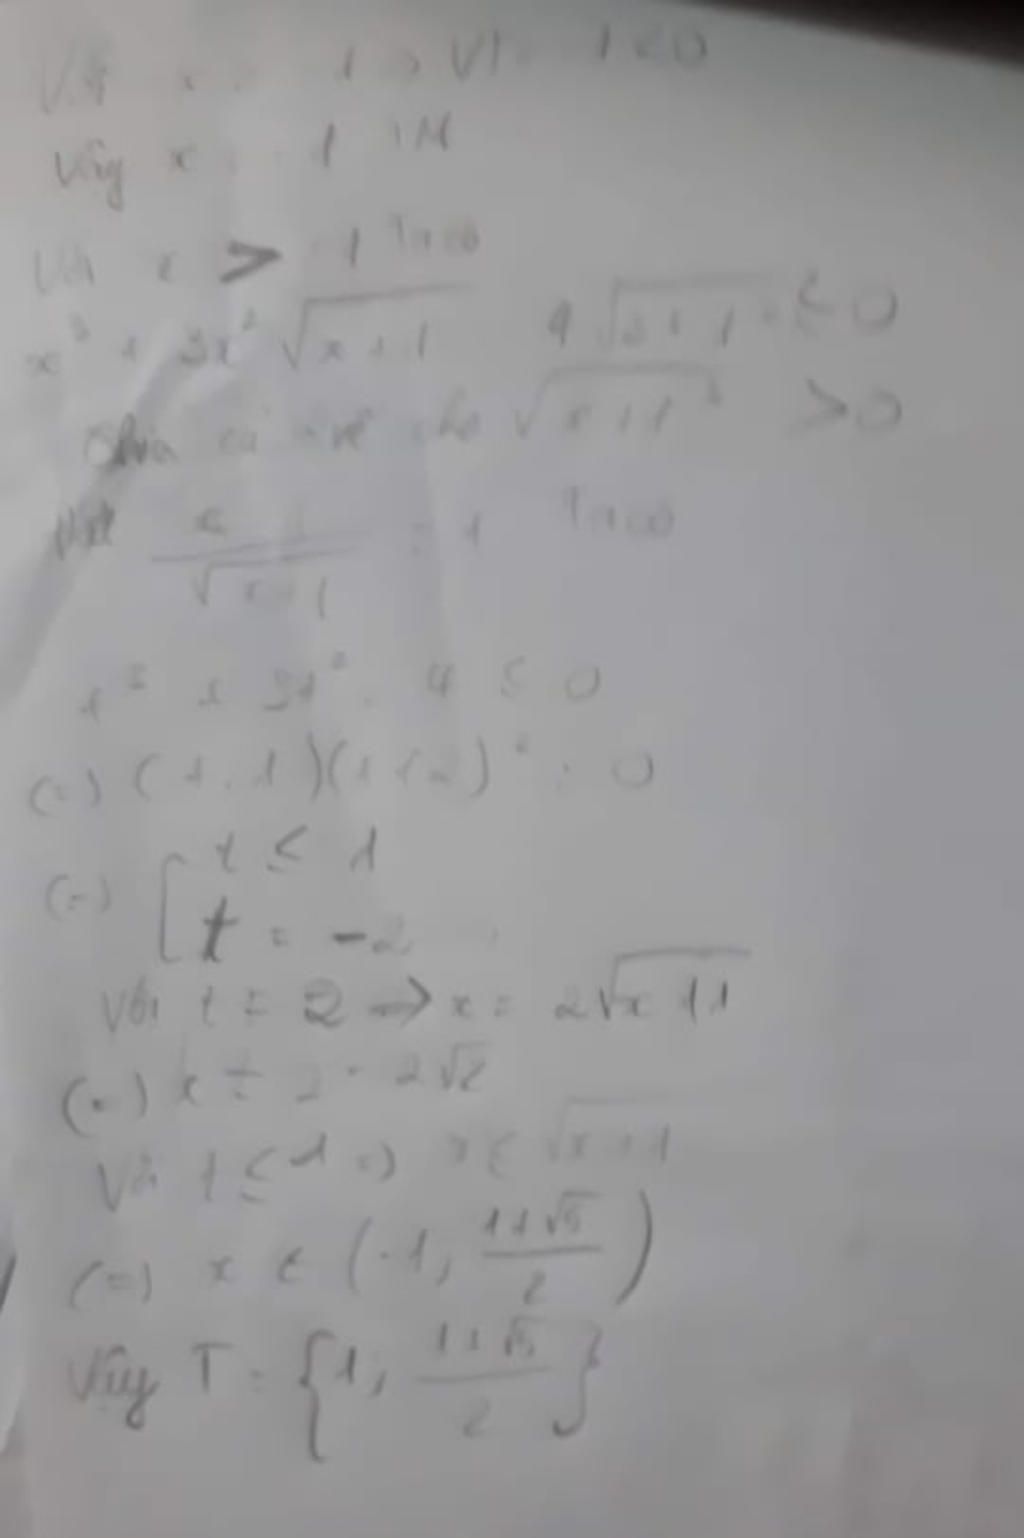 Với x = -1 => VT = -1 < 0
Vậy x = -1 TM
Với x > -1 Ta có
x³ + 3x² √(x+1) 4 √(x+1)³ ≤ 0
Chia cả vế cho √(x+1)³ > 0
Đặt x / √(x+1) = t Ta có
t³ + 3t² - 4 ≤ 0
(=) (t - 1)(t + 2)² ≤ 0
(=) [ t ≤ 1
t = -2
Với t = 2 => x = 2√(x+1)
(=) x = 2 - 2√2
Với t ≤ 1 => x ≤ √(x+1)
(=) x ∈ (-1, (1+√5)/2)
Vậy T = {1; (1+√5)/2}